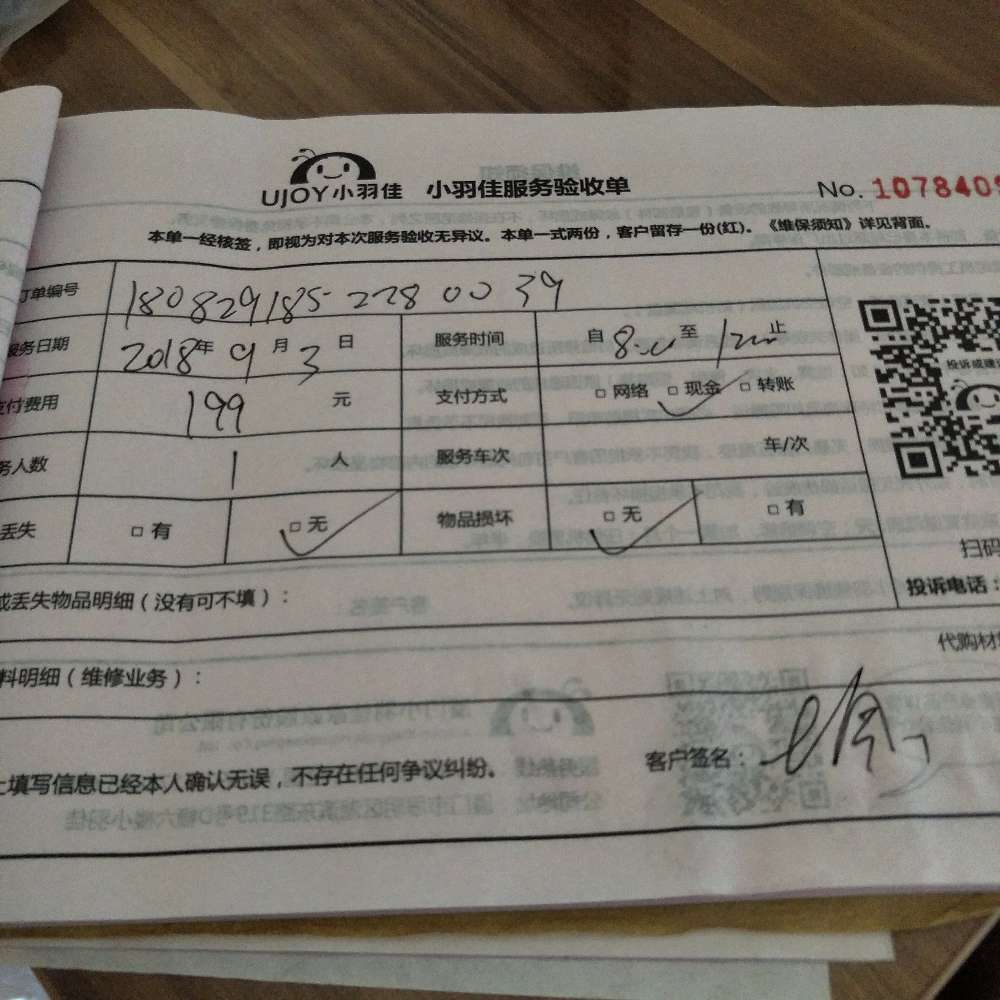 UJOY小羽佳 小羽佳服务验收单 No. 1078409
本单一经核签，即视为对本次服务验收无异议。本单一式两份，客户留存一份(红)。《维保须知》详见背面。
订单编号 180829185 228 00 39
服务日期 2018年 9 月 3 日 服务时间 自 8:00 至 12:00 止
支付费用 199 元 支付方式 □ 网络 □ 现金 □ 转账
务人数 1 人 服务车次 车/次
丢失 □ 有 □ 无 物品损坏 □ 无 □ 有
投诉或建
扫码
投诉电话：
或丢失物品明细（没有可不填）：
代购材
料明细（维修业务）：
上填写信息已经本人确认无误，不存在任何争议纠纷。 客户签名：